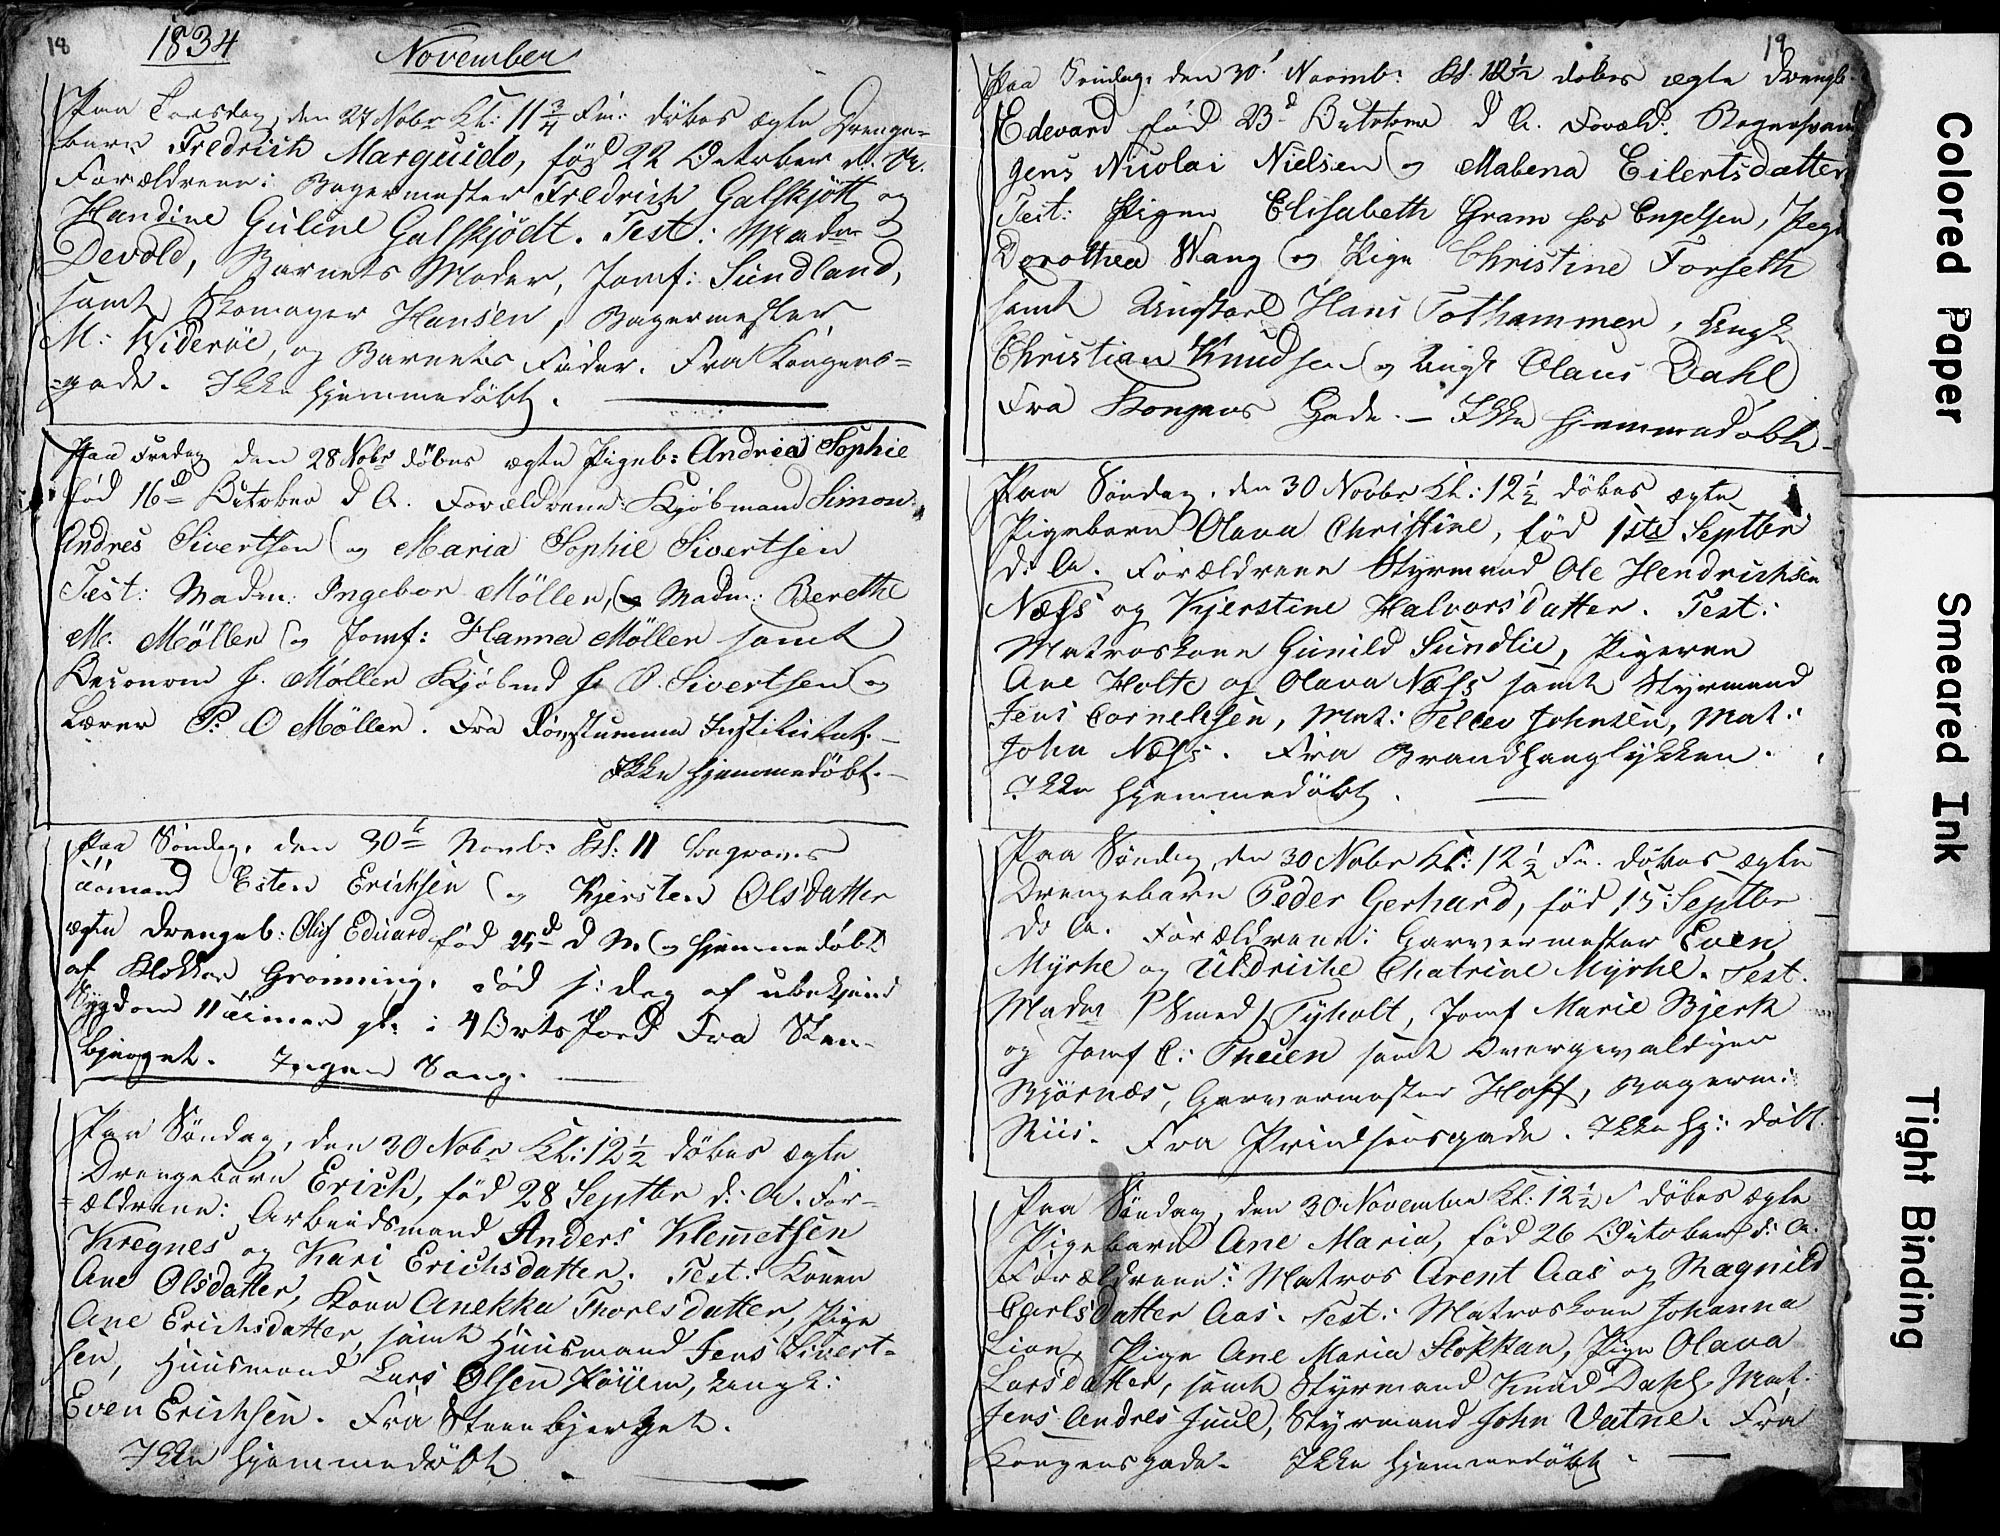 18
1834
November
Paa Torsdag, den 27 Nobr Kl: 11 3/4 Fm: döbes ægte Drenge-
barn Fredrich Marguido, fød 22 October d. A.
Forældrene: Bagermester Fredrich Galskjött og
Handine Guline Galskjödt. Test: Madm
Devold, Barnets Moder, Jomf: Sundland,
samt Skomager Hansen, Bagermester
M: Widerøe, og Barnets Fader. Fra Kongens-
-gade. Ikke hjemmedöbt.
Paa Fredag den 28 Nobr döbes ægte Pigeb: Andrea Sophie
född 16d October d A. Forældrene: Kjöbmand Simon
Andres Sivertsen og Maria Sophie Sivertsen
Test: Madm: Ingebor Möller, Madm: Berethe
M. Møller og Jomf: Hanna Møller samt
Oeconom H. Møller Kjöbmd H O. Sivertsen og
Lærer P: O Møller. Fra Dövstumme Institutet. -
Ikke hjemmedöbt. -
Paa Söndag, den 30te Novb: Kl: 11 begraves
Esten Erichsen og Kjersten Olsdatter
ægte Drengeb: Oluf Eduard född 25d d M. og hjemmedöbt
af Klokker Grønning, död s: dag af ubekjend
Sygdom 11 Timer gl: i 4 Orts Jord Fra Steen-
bjerget. Ingen Sang.
Paa Söndag, den 30 Nobr Kl: 12 1/2 döbes ægte
Drengebarn Erich, född 28 Septbr d: A. For-
-ældrene: Arbeidsmand Anders Klemetsen
Kregnes og Kari Erichsdatter. Test: Konen
Ane Olsdatter, Kone Anekka Thoresdatter, Pige
Ane Erichsdatter, samt Huusmand Jens Sivert-
sen, Huusmand Lars Olsen Höyem, Ungk:
Even Erichsen. Fra Steenbjerget.
Ikke hjemmedöbt
19
Paa Söndag, den 30t Novmb: Kl. 12 1/2 döbes ægte Drengeb:
Edevard född 23d Octobern d A. Foræld:
Jens Nicolai Nielsen og Mabena Eilertsdatter
Test: Pigen Elisabeth Gram hos Engelsen, Pige
Dorothea Wang og Pige Christine Forseth
samt Ungkarl Hans Tothammer, Ungk
Christian Knudsen og Ungk Olaus Dahl
Fra Kongens Gade. - Ikke hjemmedöbt -
Paa Söndag, den 30 Novbr Kl: 12 1/2 döbes ægte
Pigebarn Olava Christine, född 1ste Septbr
d: A. Forældrene Styrmand Ole Hendrichsen
Næss og Kjerstine Halvorsdatter. Test:
Matroskone Gunild Sundlie, Pigerne
Ane Holte og Olava Næss samt Styrmand
Jens Cornelisen, Mat: Tellev Johnsen, Mat:
John Næss. Fra Brandhauglykken.
Ikke hjemmedöbt.
Paa Söndag, den 30 Nobr Kl: 12 1/2 Fm. döbes ægte
Drengebarn Peder Gerhard, född 15 Septbr
d: A. Forældrene: Garvermester Even
Myrhe og Uldriche Chatrine Myrhe. Test.
Madm Smed Tyholt, Jomf Marie Bjerk
og Jomf C: Theien samt Overgevaldiger
Björnæs, Garvermester Hoff, Bagerm:
Riis. Fra Prindsensgade. Ikke hj: döbt.
Paa Söndag, den 30 November Kl: 12 1/2 döbes ægte
Pigebarn Ane Maria, född 26 October d: A.
Forældrene: Matros Arent Aas og Magnild
Carlsdatter Aas. Test: Matroskone Johanna
Lian, Pige Ane Maria Stokkan, Pige Olava
Larsdatter, samt Styrmand Knud Dahl, Mat.
Jens Andres Juul, Styrmand John Vatne. Fra
Kongensgade. Ikke hjemmedöbt.
Colored Paper
Smeared Ink
Tight Binding